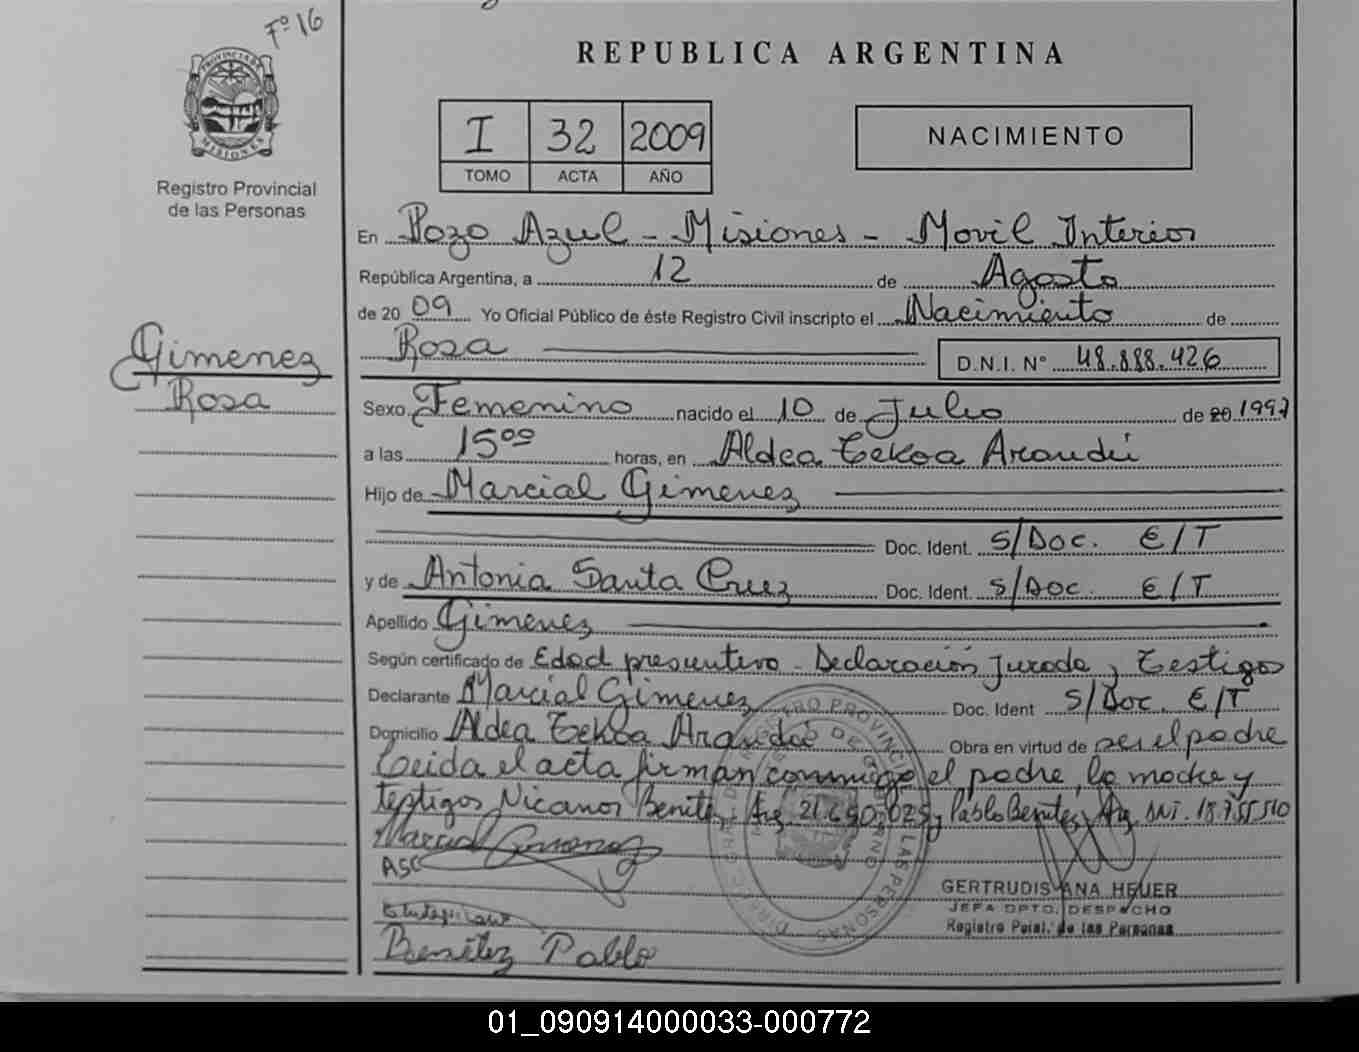 Fº 16
PROVINCIA DE
MISIONES
Registro Provincial
de las Personas
REPUBLICA ARGENTINA
I 32 2009
TOMO ACTA AÑO
NACIMIENTO
En Pozo Azul - Misiones - Movil Interior
República Argentina, a 12 de Agosto
de 20 09 Yo Oficial Público de éste Registro Civil inscripto el Nacimiento de
Rosa D.N.I. Nº 48.888.426
Gimenez
Rosa
Sexo Femenino nacido el 10 de Julio de 20 1997
a las 15⁰⁰ horas, en Aldea Tekoa Arandú
Hijo de Marcial Gimenez
Doc. Ident. S/Doc. E/T
y de Antonia Santa Cruz Doc. Ident. S/Doc. E/T
Apellido Gimenez
Según certificado de Edad presuntiva - Declaración Jurada y Testigos
Declarante Marcial Gimenez Doc. Ident S/Doc. E/T
Domicilio Aldea Tekoa Arandú Obra en virtud de ser el padre
Leida el acta firman conmigo el padre, la madre y
testigos Nicanor Benitez, Arg. 21.690.025 y Pablo Benitez, Arg. DNI. 18.755.510
Marcial Gimenez
ASC
Benítez Pablo
GERTRUDIS ANA HEUER
JEFA DPTO. DESPACHO
Registro Pcial. de las Personas
01_090914000033-000772